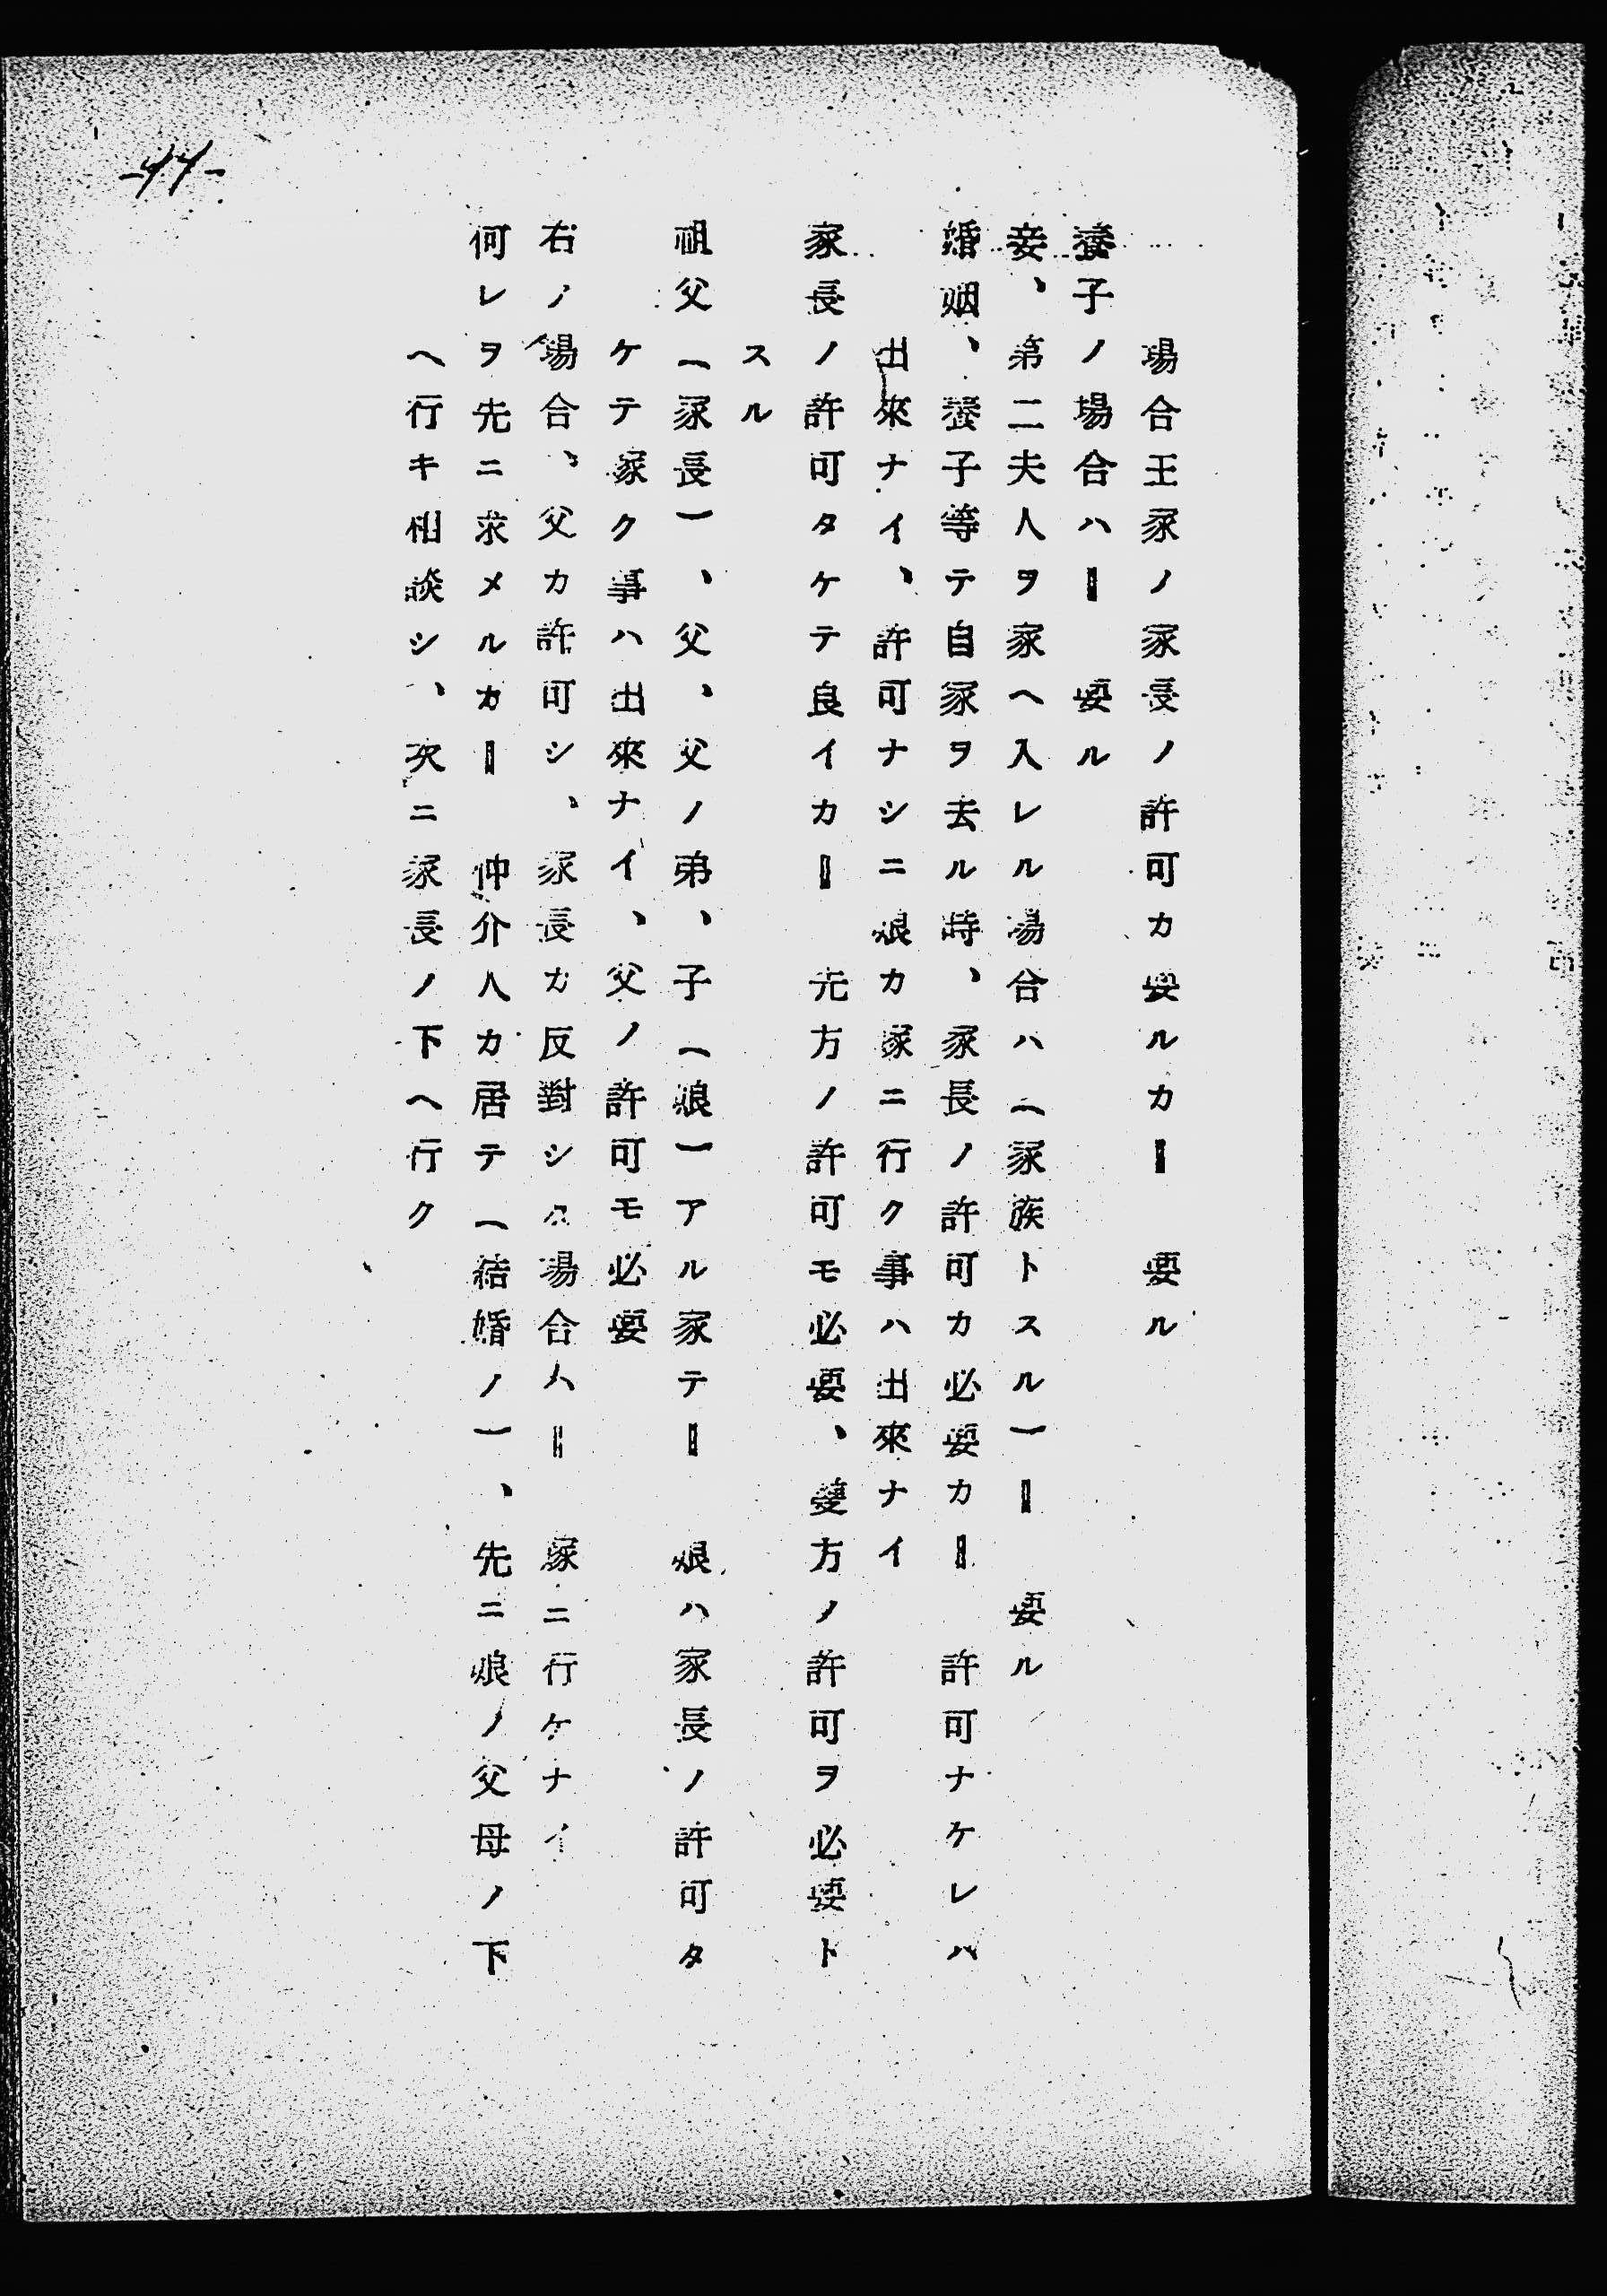 場合王家ノ家長ノ許可カ要ルカ──　要ル
養子ノ場合ハ──　要ル
妾、第二夫人ヲ家ヘ入レル場合ハ（家族トスル）──　要ル
婚姻、養子等テ自家ヲ去ル時、家長ノ許可カ必要カ──　許可ナケレハ
出來ナイ、許可ナシニ娘カ嫁ニ行ク事ハ出來ナイ
家長ノ許可タケテ良イカ──　先方ノ許可モ必要、雙方ノ許可ヲ必要ト
スル
祖父（家長）、父、父ノ弟、子（娘）アル家テ──　娘ハ家長ノ許可タ
ケテ嫁ク事ハ出來ナイ、父ノ許可モ必要
右ノ場合、父カ許可シ、家長カ反對シタ場合ハ──　嫁ニ行ケナイ
何レヲ先ニ求メルカ──　仲介人カ居テ（結婚ノ）、先ニ娘ノ父母ノ下
ヘ行キ相談シ、次ニ家長ノ下ヘ行ク
-44-